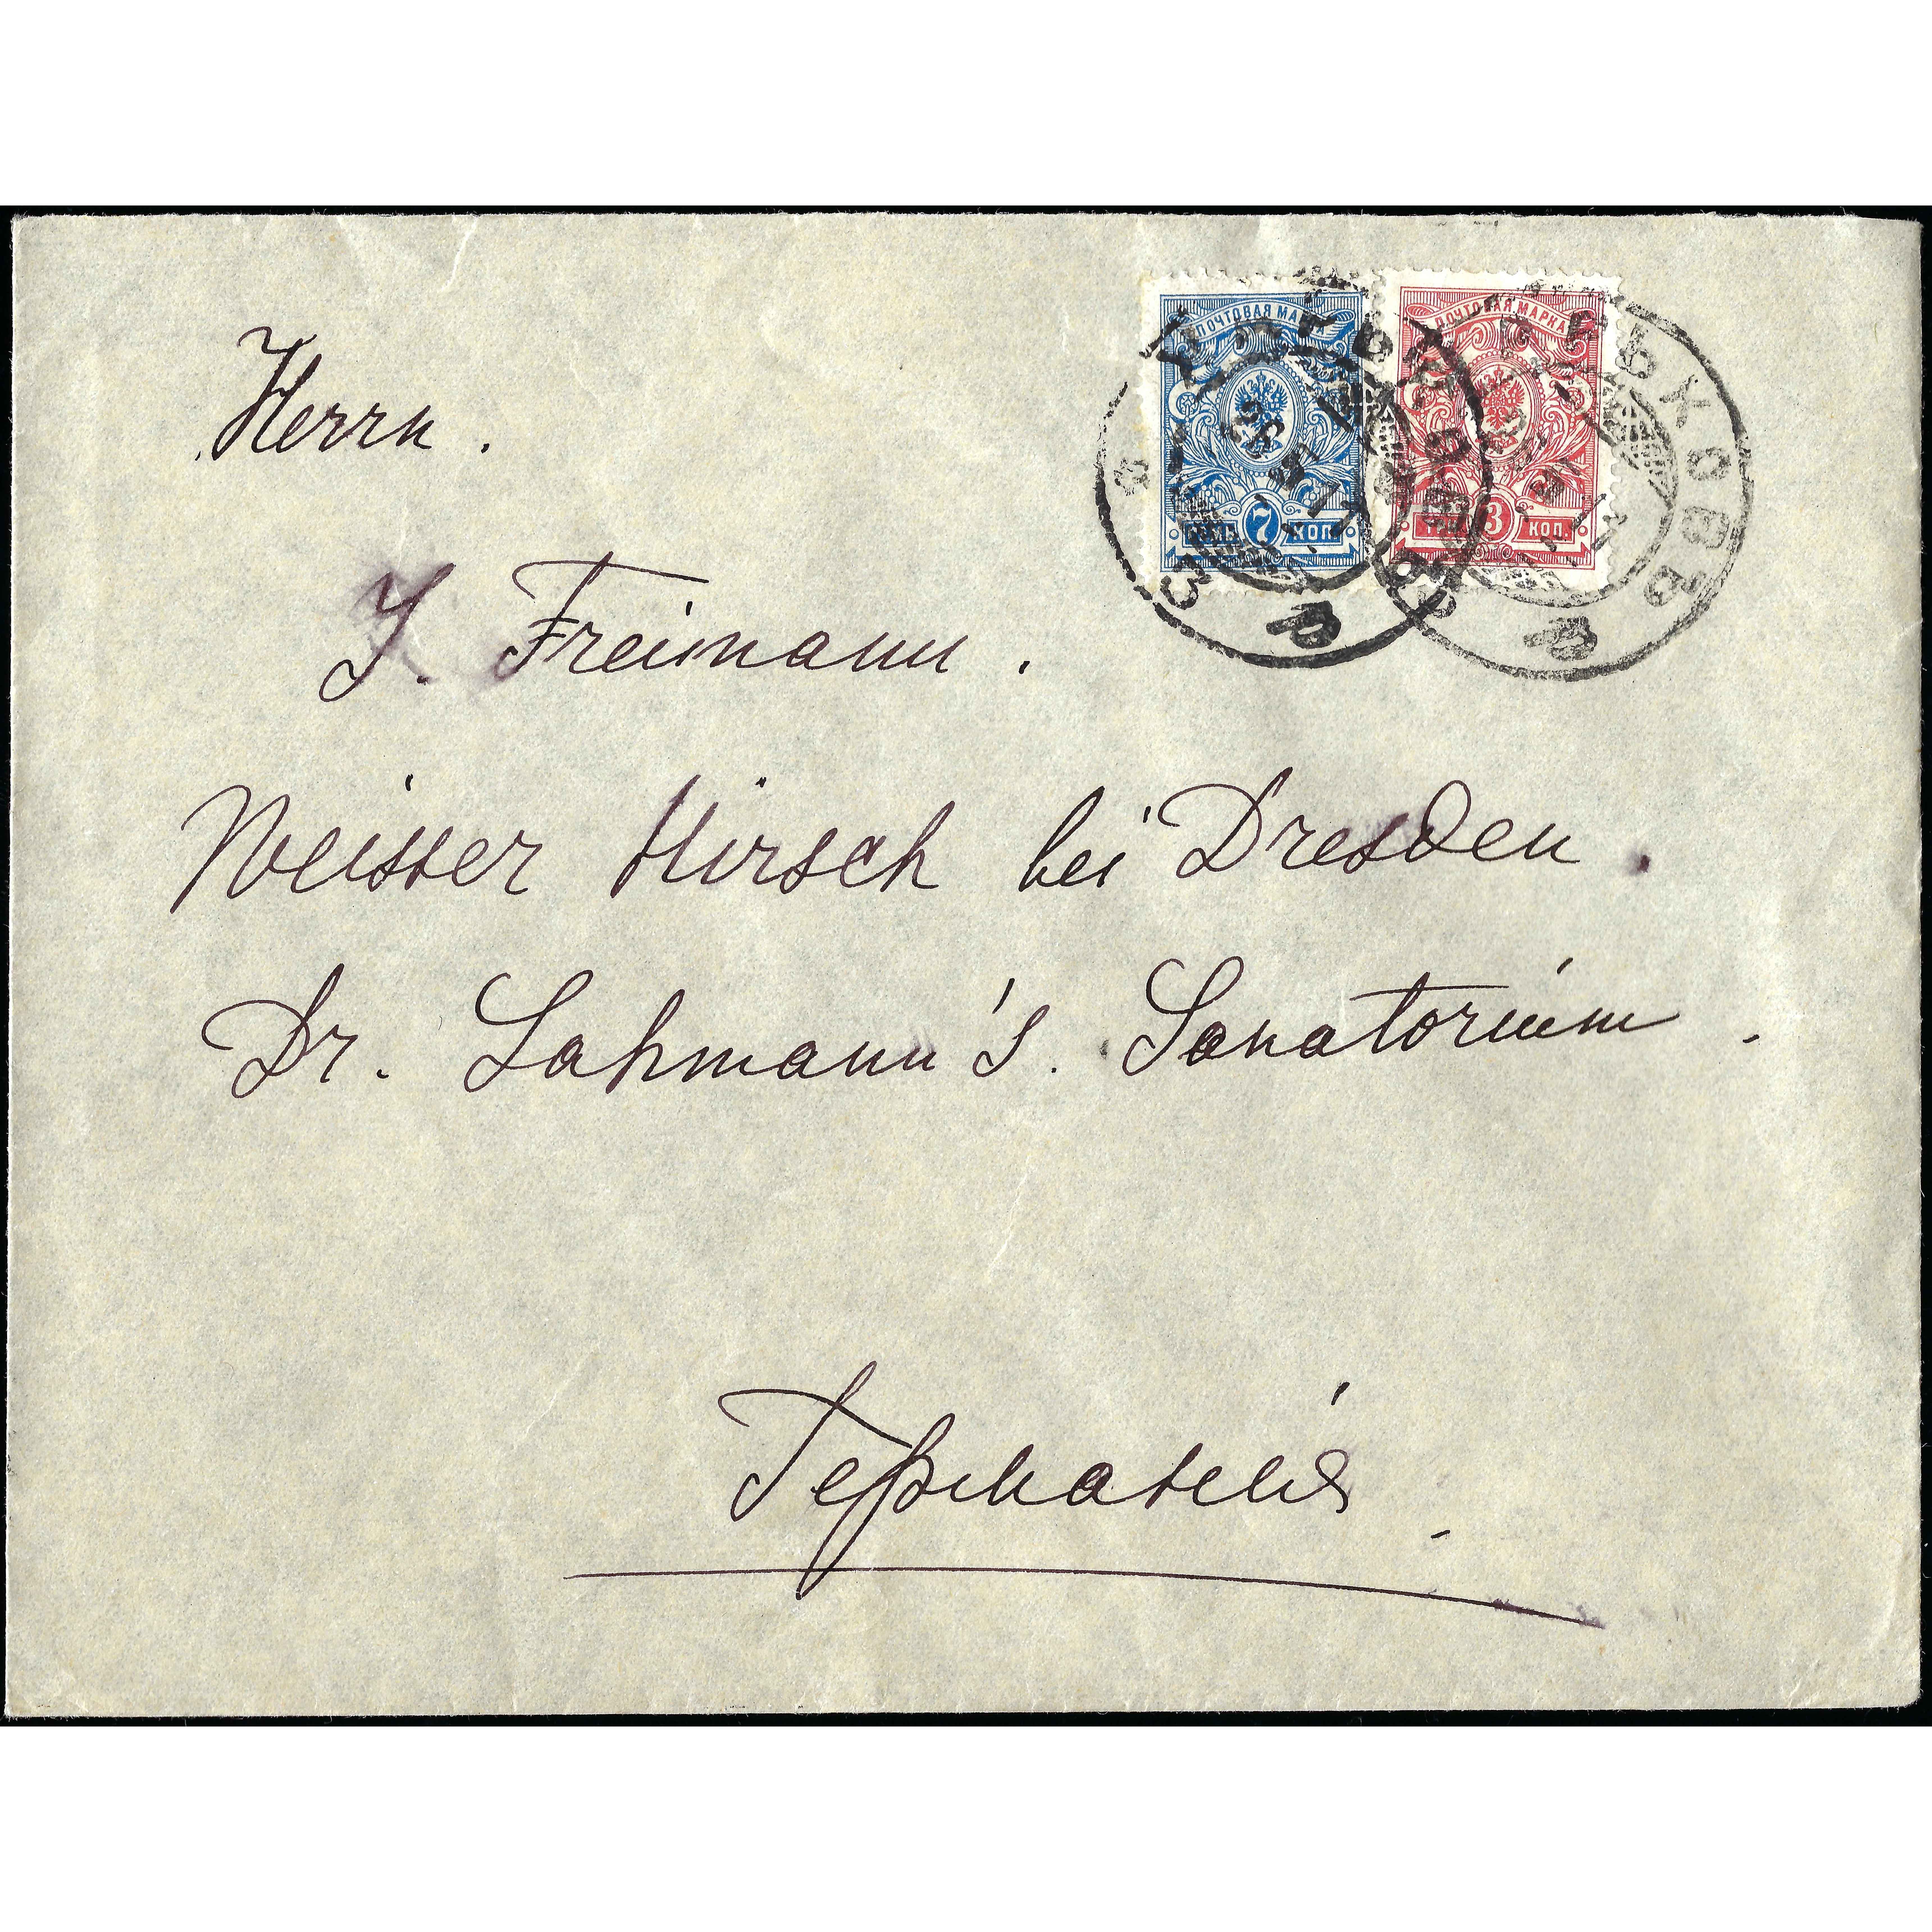 ПОЧТОВАЯ МАРКА ПОЧТОВАЯ МАРКА
7 КОП. 3 КОП.
Herrn.
J. Freimann.
Weisser Hirsch bei Dresden.
Dr. Lahmann's. Sanatorium.
Германія.